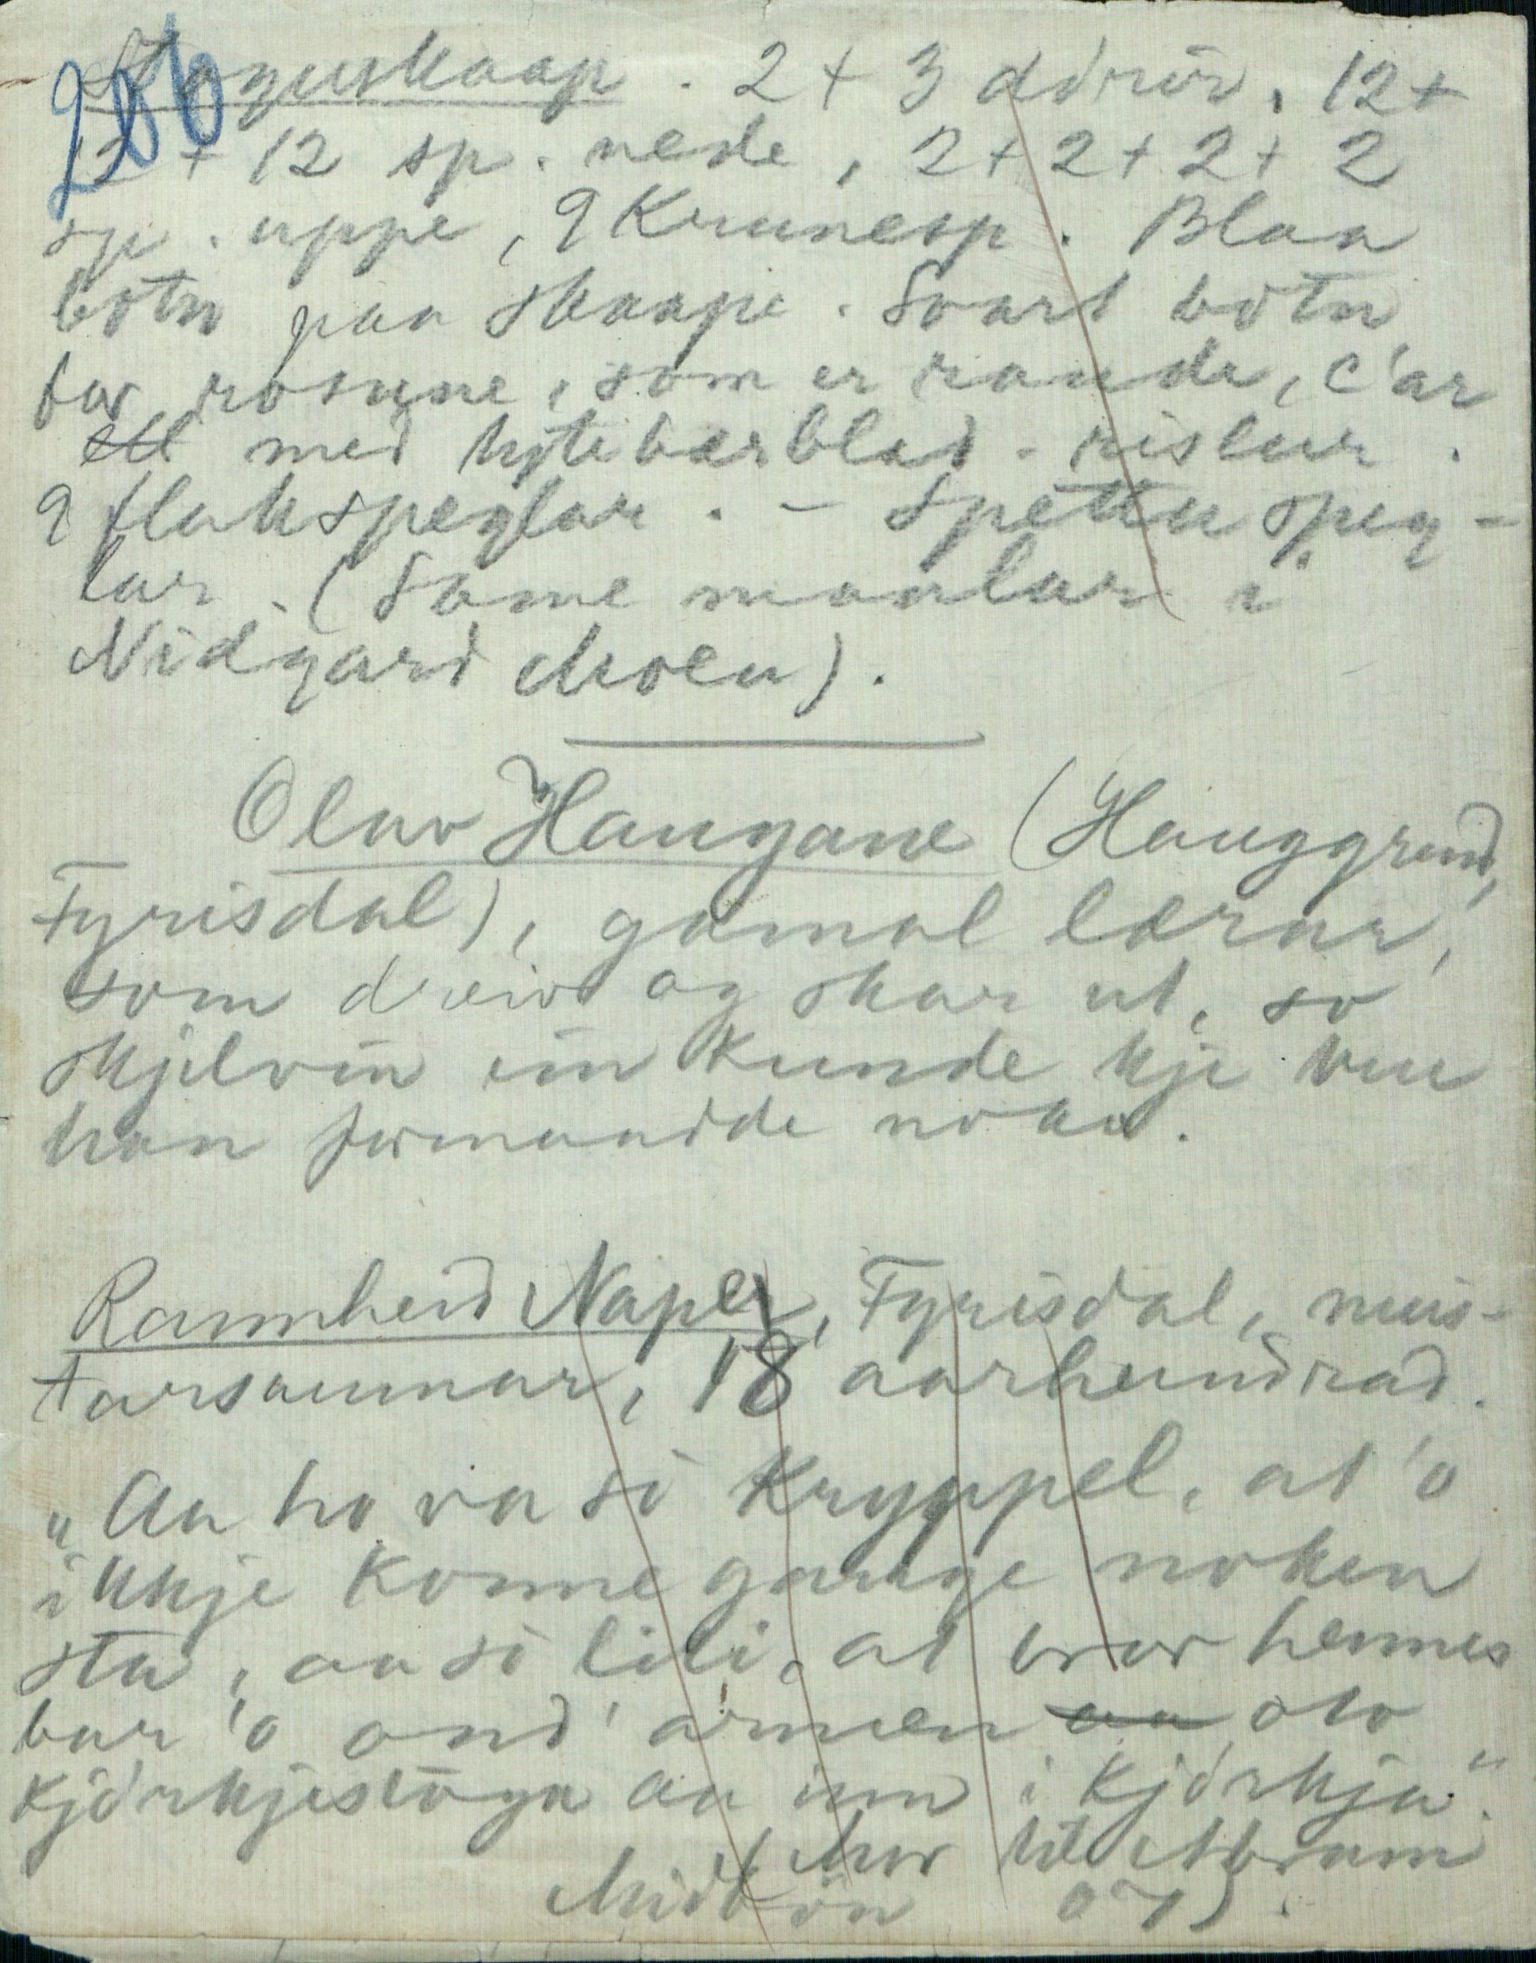 206
Stoguskaap. 2 + 3 dörir, 12 +
12 + 12 sp. nede, 2 + 2 + 2 + 2
sp. uppe, 9 Krunesp. Blaa
botn paa skaape. Svart botn
for rosune, som er raude, c'ar
med tytebærblad-rislur.
9 flakspeglar. - Spettu speg-
lar. (Same maalar i
Nidgard Moen).
Olav Haugane (Hauggrend,
Fyrisdal), gamal lærar,
som dreiv og skar ut, so
skjelvin ein kunde kje tru
han formaadde noko.
Rannheid Naper, Fyrisdal, meis-
tarsaumar, 18 aarhundrad.
"Aa ho va so kryppel, at 'o
ikkje konne gange noken
sta, aa so liti, at bror hennes
bar 'o ond' armen aa oto
kjörkjestoga aa inn i kjörkja".
(Mor til Abram
Midtön 07).